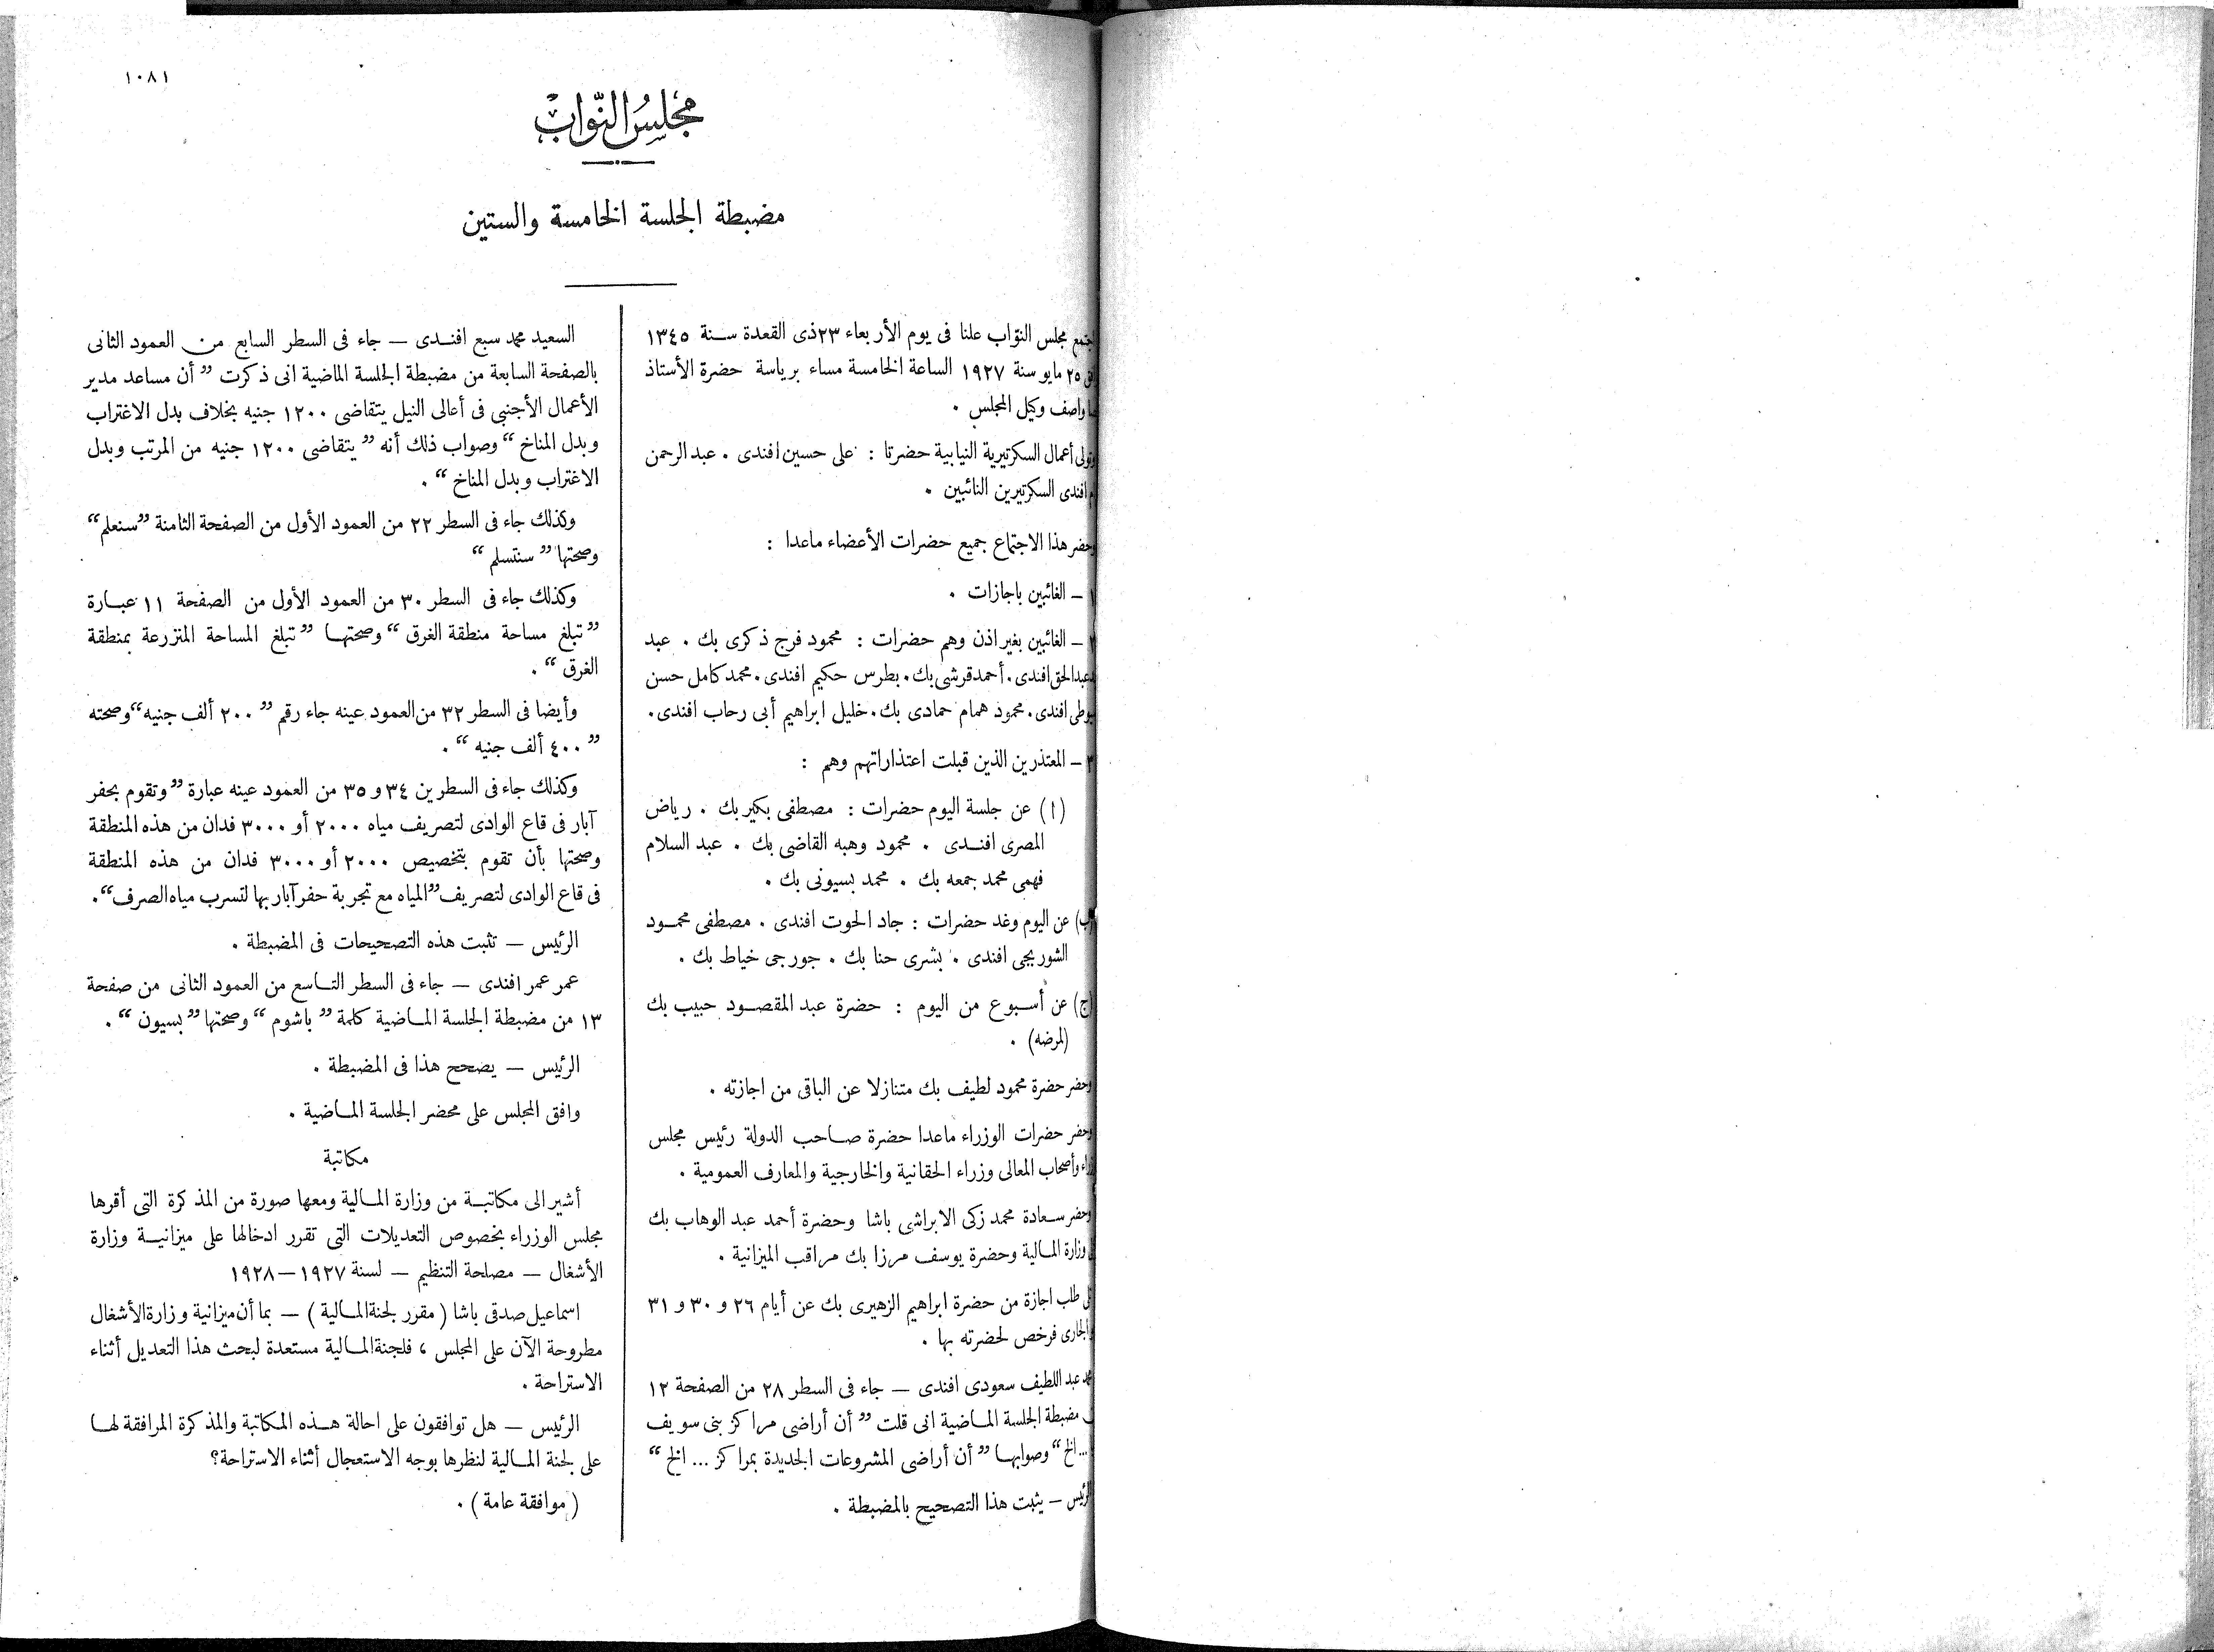 ١٠٨١
مجلس النوّاب
مضبطة الجلسة الخامسة والستين
اجتمع مجلس النوّاب علنا فى يوم الأربعاء ٢٣ ذى القعدة سنة ١٣٤٥
٢٥ مايو سنة ١٩٢٧ الساعة الخامسة مساء برياسة حضرة الأستاذ
واصف وكيل المجلس .
وتولى أعمال السكرتيرية النيابية حضرتا : على حسين افندى . عبد الرحمن
افندى السكرتيرين النائبين .
وحضر هذا الاجتماع جميع حضرات الأعضاء ماعدا :
١ — الغائبين باجازات .
٢ — الغائبين بغير اذن وهم حضرات : محمود فرج ذكرى بك . عبد
عبد الحق افندى . أحمد قرشى بك . بطرس حكيم افندى . محمد كامل حسن
افندى . محمود همام حمادى بك . خليل ابراهيم أبى رحاب افندى .
٣ — المعتذرين الذين قبلت اعتذاراتهم وهم :
(ا) عن جلسة اليوم حضرات : مصطفى بكير بك . رياض
المصرى افندى . محمود وهبه القاضى بك . عبد السلام
فهمى محمد جمعه بك . محمد بسيونى بك .
(ب) عن اليوم وغد حضرات : جاد الحوت افندى . مصطفى محمود
الشوربجى افندى . بشرى حنا بك . جورجى خياط بك .
(ج) عن أسبوع من اليوم : حضرة عبد المقصود حبيب بك
(لمرضه) .
وحضر حضرة محمود لطيف بك متنازلا عن الباقى من اجازته .
وحضر حضرات الوزراء ماعدا حضرة صاحب الدولة رئيس مجلس
وأصحاب المعالى وزراء الحقانية والخارجية والمعارف العمومية .
وحضر سعادة محمد زكى الابراشى باشا وحضرة أحمد عبد الوهاب بك
وزارة المالية وحضرة يوسف مرزا بك مراقب الميزانية .
طلب اجازة من حضرة ابراهيم الزهيرى بك عن أيام ٢٦ و ٣٠ و ٣١
الجارى فرخص لحضرته بها .
محمد عبد اللطيف سعودى افندى — جاء فى السطر ٢٨ من الصفحة ١٢
مضبطة الجلسة الماضية انى قلت ” أن أراضى مراكز بنى سويف
... الخ “ وصوابها ” أن أراضى المشروعات الجديدة بمراكز ... الخ “
الرئيس — يثبت هذا التصحيح بالمضبطة .
السعيد محمد سبع افندى — جاء فى السطر السابع من العمود الثانى
بالصفحة السابعة من مضبطة الجلسة الماضية انى ذكرت ” أن مساعد مدير
الأعمال الأجنبى فى أعالى النيل يتقاضى ١٢٠٠ جنيه بخلاف بدل الاغتراب
وبدل المناخ “ وصواب ذلك أنه ” يتقاضى ١٢٠٠ جنيه من المرتب وبدل
الاغتراب وبدل المناخ “ .
وكذلك جاء فى السطر ٢٢ من العمود الأول من الصفحة الثامنة ”سنعلم“
وصحتها ” سنتسلم “
وكذلك جاء فى السطر ٣٠ من العمود الأول من الصفحة ١١ عبارة
” تبلغ مساحة منطقة الغرق “ وصحتها ” تبلغ المساحة المنزرعة بمنطقة
الغرق “ .
وأيضا فى السطر ٣٢ من العمود عينه جاء رقم ” ٢٠٠ ألف جنيه“ وصحته
” ٤٠٠ ألف جنيه “ .
وكذلك جاء فى السطرين ٣٤ و ٣٥ من العمود عينه عبارة ” وتقوم بحفر
آبار فى قاع الوادى لتصريف مياه ٢٠٠٠ أو ٣٠٠٠ فدان من هذه المنطقة
وصحتها بأن تقوم بتخصيص ٢٠٠٠ أو ٣٠٠٠ فدان من هذه المنطقة
فى قاع الوادى لتصريف ” المياه مع تجربة حفر آبار بها لتسرب مياه الصرف “ .
الرئيس — تثبت هذه التصحيحات فى المضبطة .
عمر عمر افندى — جاء فى السطر التاسع من العمود الثانى من صفحة
١٣ من مضبطة الجلسة الماضية كلمة ” باشوم “ وصحتها ” بسيون “ .
الرئيس — يصحح هذا فى المضبطة .
وافق المجلس على محضر الجلسة الماضية .
مكاتبة
أشير الى مكاتبة من وزارة المالية ومعها صورة من المذكرة التى أقرها
مجلس الوزراء بخصوص التعديلات التى تقرر ادخالها على ميزانية وزارة
الأشغال — مصلحة التنظيم — لسنة ١٩٢٧—١٩٢٨
اسماعيل صدقى باشا ( مقرر لجنة المالية ) — بما أن ميزانية وزارة الأشغال
مطروحة الآن على المجلس ، فلجنة المالية مستعدة لبحث هذا التعديل أثناء
الاستراحة .
الرئيس — هل توافقون على احالة هذه المكاتبة والمذكرة المرافقة لها
على لجنة المالية لنظرها بوجه الاستعجال أثناء الاستراحة؟
( موافقة عامة ) .